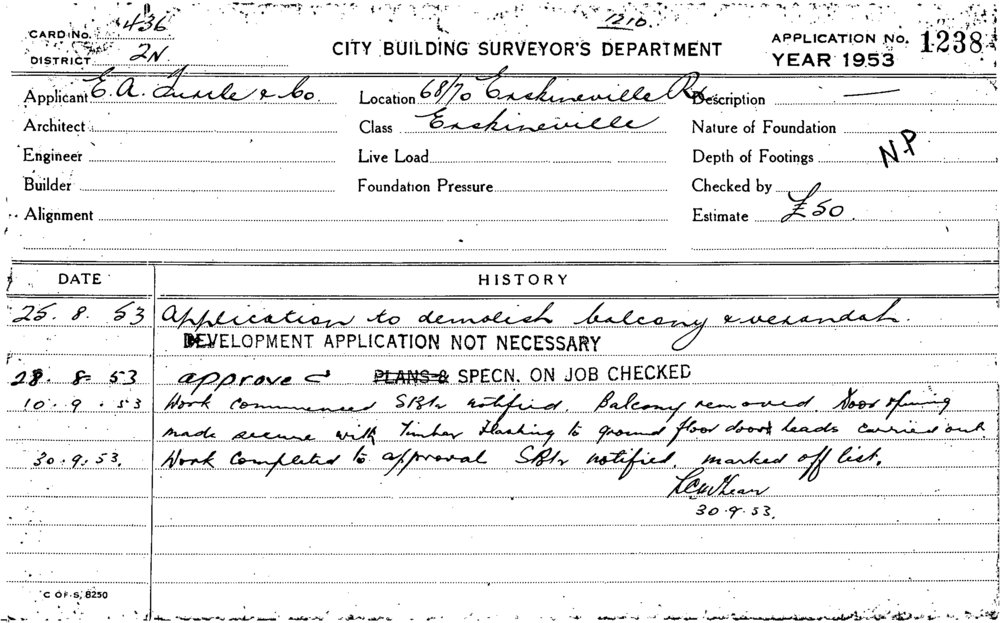 1216.
CARD No. 436
DISTRICT 2N
CITY BUILDING SURVEYOR'S DEPARTMENT
APPLICATION No. 1238
YEAR 1953
Applicant E. A. & Co Location 68/70 Erskineville Rd Description —
Architect Class Erskineville Nature of Foundation
Engineer Live Load Depth of Footings N.P
Builder Foundation Pressure Checked by
Alignment Estimate £50
DATE HISTORY
25. 8. 53 Application to demolish balcony & verandah.
DEVELOPMENT APPLICATION NOT NECESSARY
28. 8. 53 approved PLANS & SPECN. ON JOB CHECKED
10. 9. 53 Work commenced notified. Balcony removed. Door opening
made secure with Timber flashing to ground floor door heads carried out
30. 9. 53. Work completed to approval notified. marked off list.
30. 9. 53.
C OF S, 8250